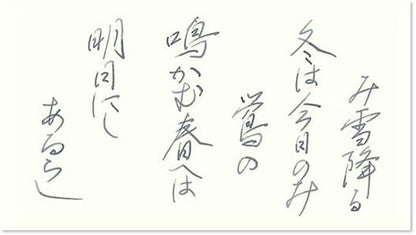 み雪降る
冬は今日のみ
鶯の
鳴かむ春へは
明日にし
あるらし